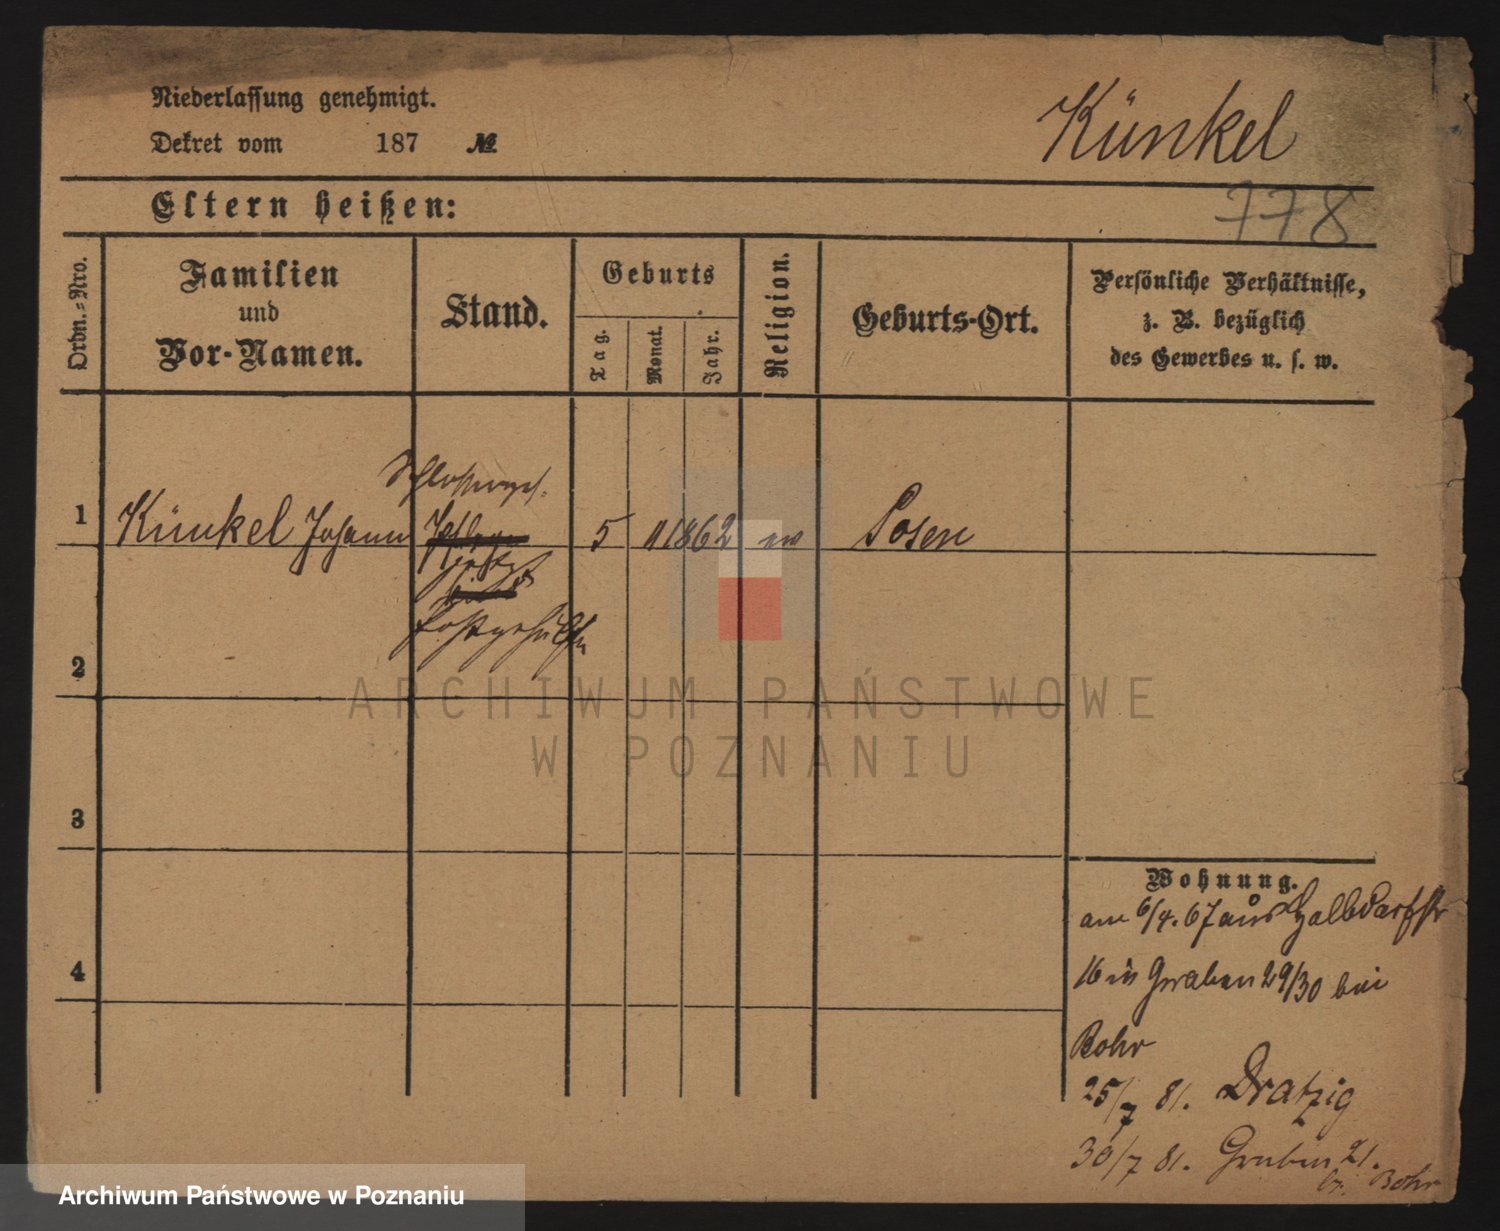 Niederlassung genehmigt.
Künkel
Dekret vom 187 №
Eltern heißen:
778
Ordn.-Nro.
Familien
und
Vor-Namen.
Stand.
Geburts
Tag.
Monat.
Jahr.
Religion.
Geburts-Ort.
Persönliche Verhältnisse,
z. B. bezüglich
des Gewerbes u. s. w.
1 Künkel Johann 5 11 1862 ev Posen
Postgehülfe
2
3
4
ARCHIWUM PAŃSTWOWE
W POZNANIU
Wohnung.
am 6/4. 67 aus Halbdorfstr
16 in Graben 29/30 bei
Bohr
25/7 81. Dratzig
30/7 81. Graben 21.
br. Bohr
Archiwum Państwowe w Poznaniu